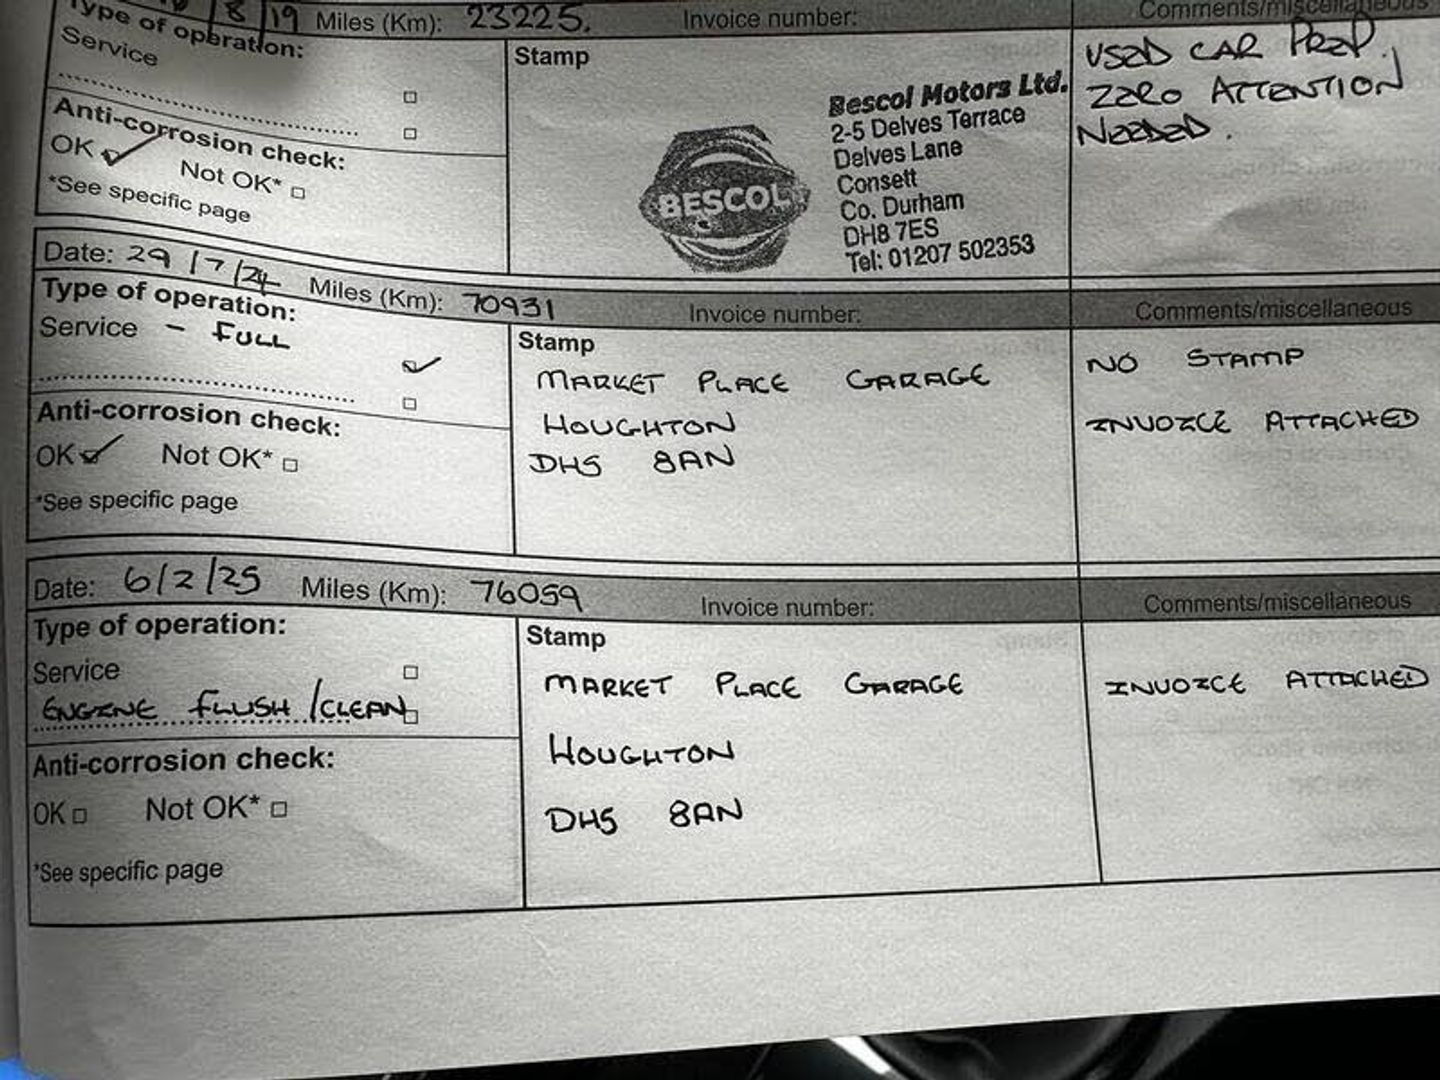 /8/19 Miles (Km): 23225. Invoice number: Comments/miscellaneous
Type of operation:
Service
Stamp
USED CAR PREP.
ZERO ATTENTION
NEEDED.
Anti-corrosion check:
OK Not OK*
*See specific page
BESCOL
Bescol Motors Ltd.
2-5 Delves Terrace
Delves Lane
Consett
Co. Durham
DH8 7ES
Tel: 01207 502353
Date: 29/7/24 Miles (Km): 70931 Invoice number: Comments/miscellaneous
Type of operation:
Service - FULL
Stamp
MARKET PLACE GARAGE
HOUGHTON
DH5 8AN
NO STAMP
INVOICE ATTACHED
Anti-corrosion check:
OK Not OK*
*See specific page
Date: 6/2/25 Miles (Km): 76059 Invoice number: Comments/miscellaneous
Type of operation:
Service
ENGINE FLUSH/CLEAN
Stamp
MARKET PLACE GARAGE
HOUGHTON
DH5 8AN
INVOICE ATTACHED
Anti-corrosion check:
OK Not OK*
*See specific page